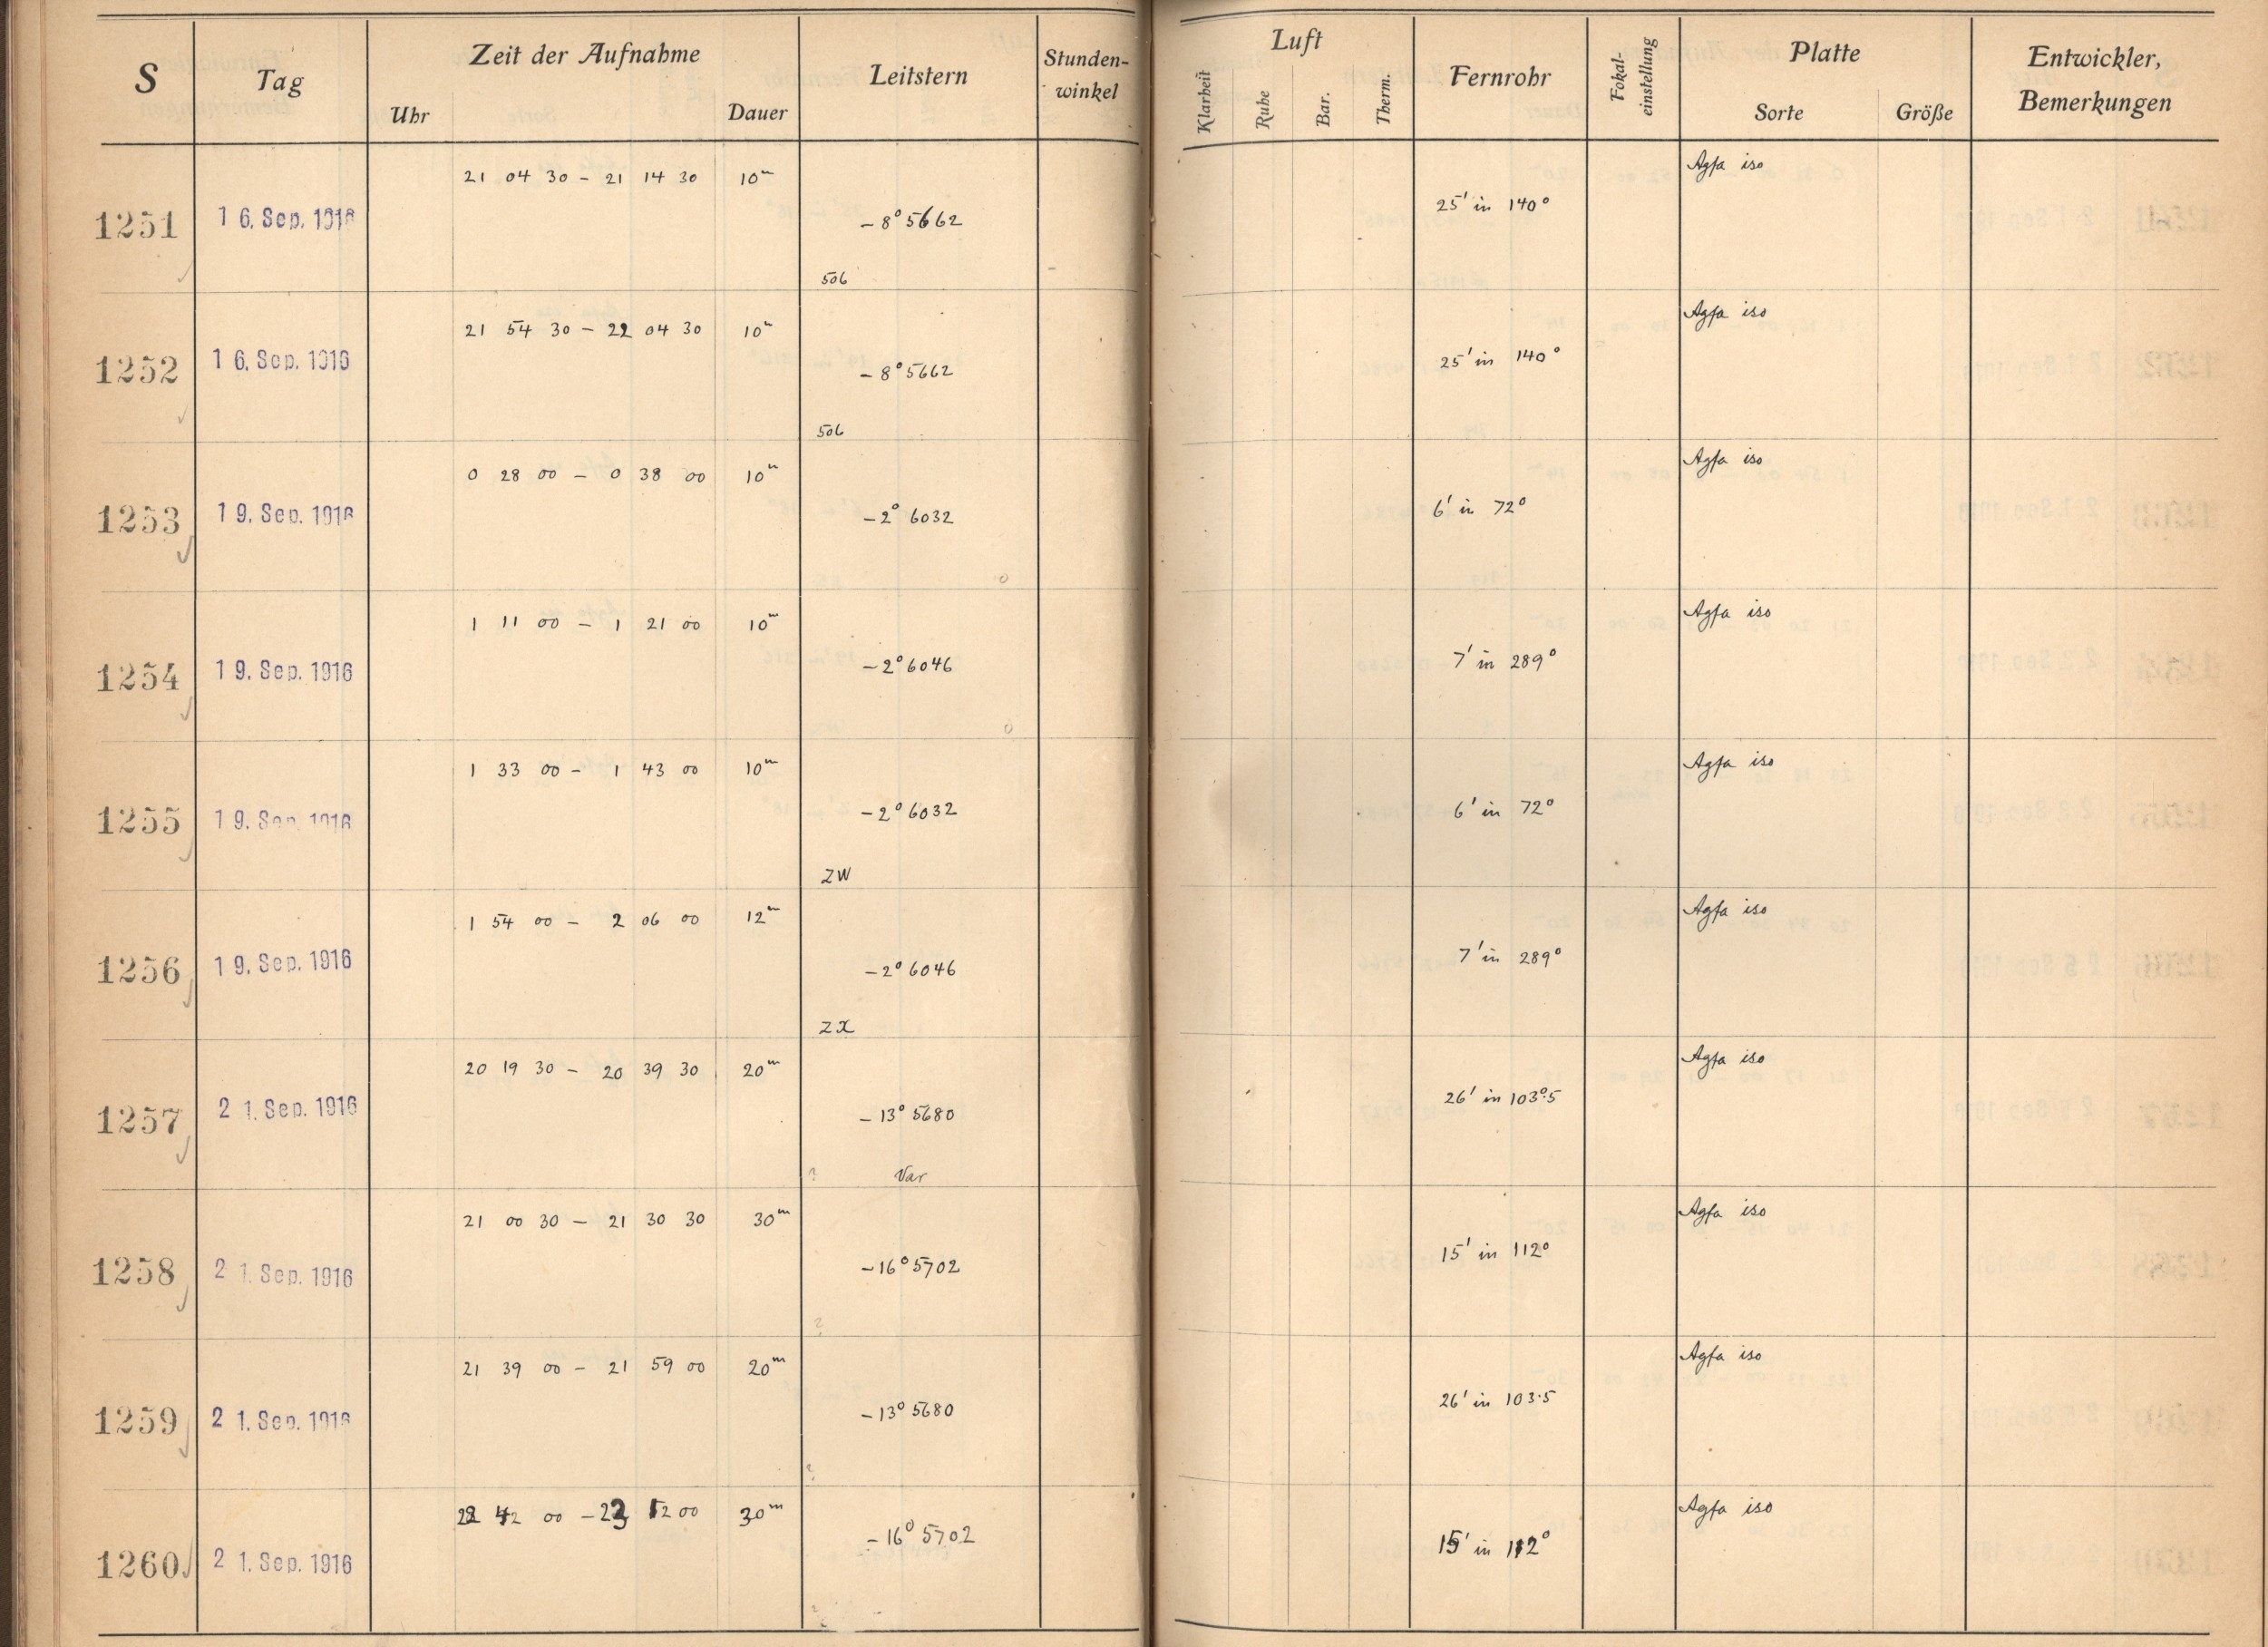 S Tag Zeit der Aufnahme Leitstern Stunden-winkel Luft Fernrohr Fokal-einstellung Platte Entwickler, Bemerkungen
Uhr Dauer Klarheit Ruhe Bar. Therm. Sorte Größe
21 04 30 - 21 14 30 10m Agfa iso
1251 16. Sep. 1916 -8° 5662 25' in 140°
506
21 54 30 - 22 04 30 10m Agfa iso
1252 16. Sep. 1916 -8° 5662 25' in 140°
506
0 28 00 - 0 38 00 10m Agfa iso
1253 19. Sep. 1916 -2° 6032 6' in 72°
0
1 11 00 - 1 21 00 10m Agfa iso
1254 19. Sep. 1916 -2° 6046 7' in 289°
0
1 33 00 - 1 43 00 10m Agfa iso
1255 19. Sep. 1916 -2° 6032 6' in 72°
ZW
1 54 00 - 2 06 00 12m Agfa iso
1256 19. Sep. 1916 -2° 6046 7' in 289°
ZX
20 19 30 - 20 39 30 20m Agfa iso
1257 21. Sep. 1916 -13° 5680 26' in 103°.5
? Var
21 00 30 - 21 30 30 30m Agfa iso
1258 21. Sep. 1916 -16° 5702 15' in 112°
?
21 39 00 - 21 59 00 20m Agfa iso
1259 21. Sep. 1916 -13° 5680 26' in 103.5
?
22 42 00 - 23 12 00 30m Agfa iso
1260 21. Sep. 1916 -16° 5702 15' in 112°
?